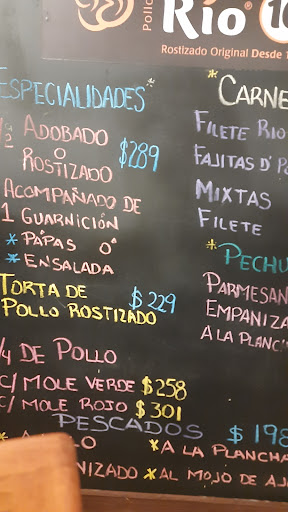 Pollo
Río
Rostizado Original Desde 1
ESPECIALIDADES
½ ADOBADO
O
ROSTIZADO
$289
ACOMPAÑADO DE
1 GUARNICIÓN
* PÁPAS Ó
* ENSALADA
TORTA DE
POLLO ROSTIZADO
$229
¼ DE POLLO
C/ MOLE VERDE $258
C/ MOLE ROJO $301
* CARNE
FILETE RIO
FAJITAS D' P
MIXTAS
FILETE
* PECHU
PARMESAN
EMPANIZA
A LA PLANCH
PESCADOS $198
*A LA PLANCHA
NIZADO *AL MOJO DE AJ